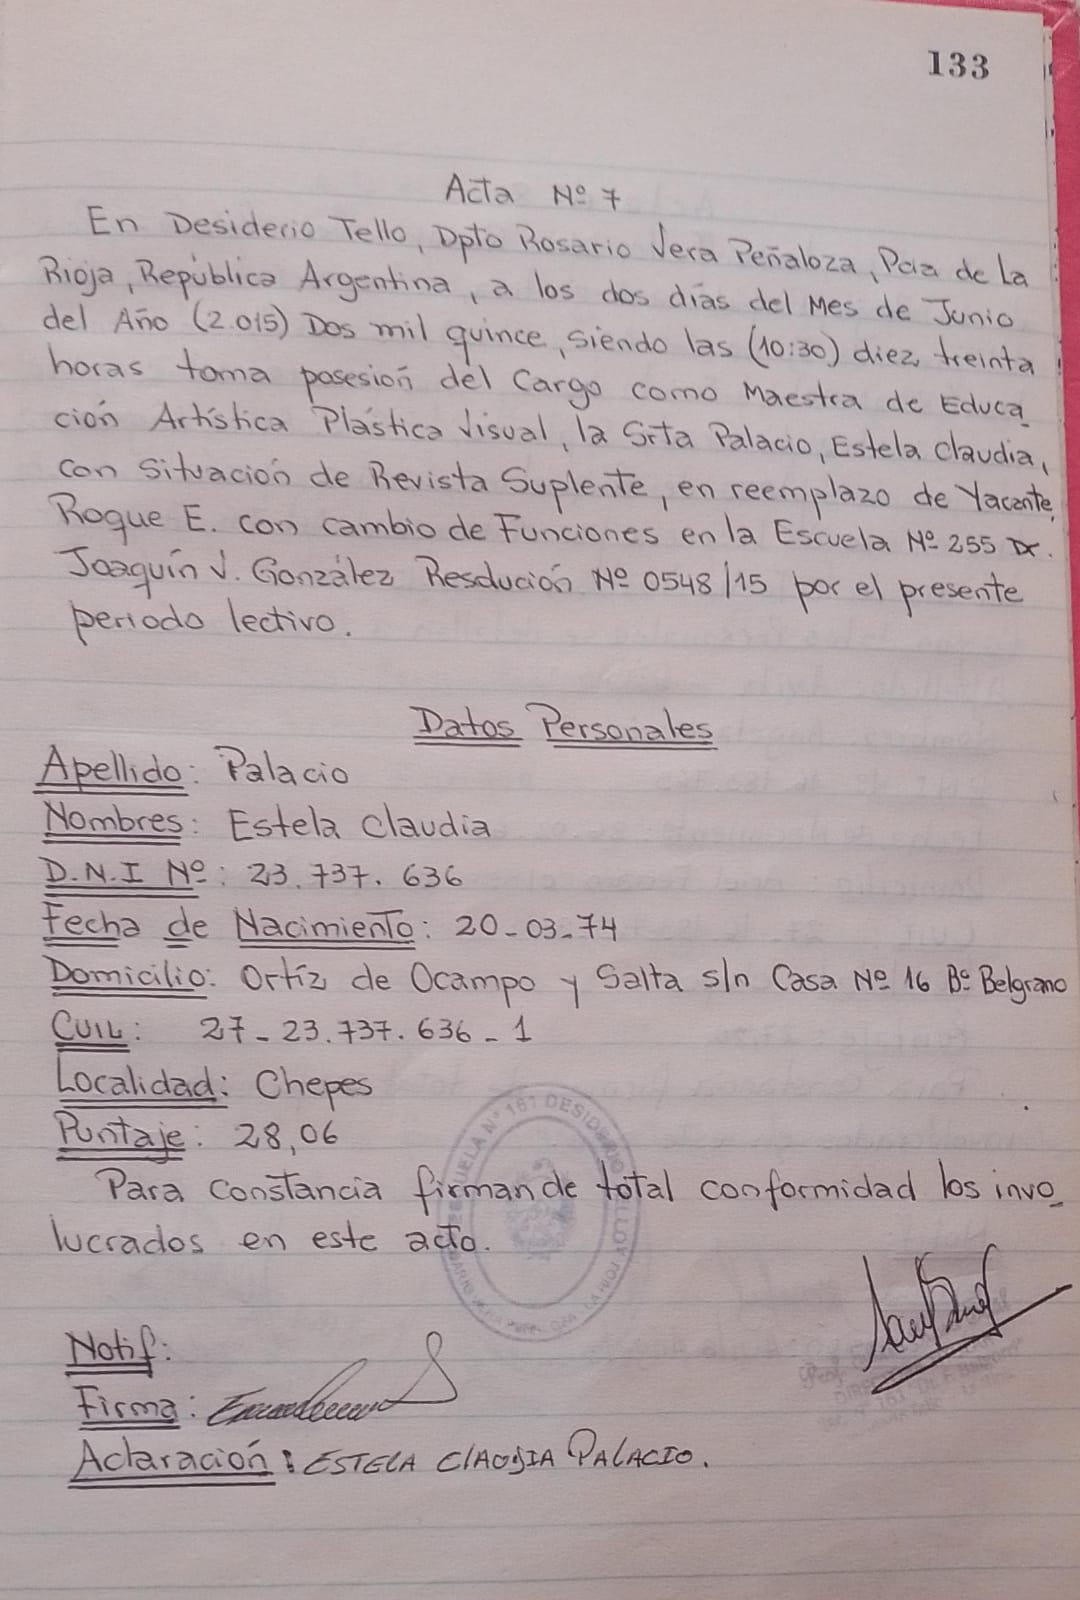 133
Acta Nº 7
En Desiderio Tello, Dpto Rosario Vera Peñaloza, Pcia de La
Rioja, República Argentina, a los dos días del Mes de Junio
del Año (2.015) Dos mil quince, siendo las (10:30) diez treinta
horas toma posesión del Cargo como Maestra de Educa_
ción Artística Plástica Visual, la Srta Palacio, Estela Claudia,
con Situación de Revista Suplente, en reemplazo de Yacante,
Roque E. con cambio de Funciones en la Escuela Nº 255 Dr.
Joaquín V. González Resolución Nº 0548/15 por el presente
periodo lectivo.
Datos Personales
Apellido: Palacio
Nombres: Estela Claudia
D.N.I Nº: 23.737.636
Fecha de Nacimiento: 20-03-74
Domicilio: Ortíz de Ocampo y Salta s/n Casa Nº 16 Bº Belgrano
CUIL: 27-23.737.636-1
Localidad: Chepes
Puntaje: 28,06
Para Constancia firman de total conformidad los invo_
lucrados en este acto.
ESCUELA Nº 161 DESIDERIO TELLO
Notif:
Firma:
Aclaración: ESTELA ClAUDIA PALACIO.